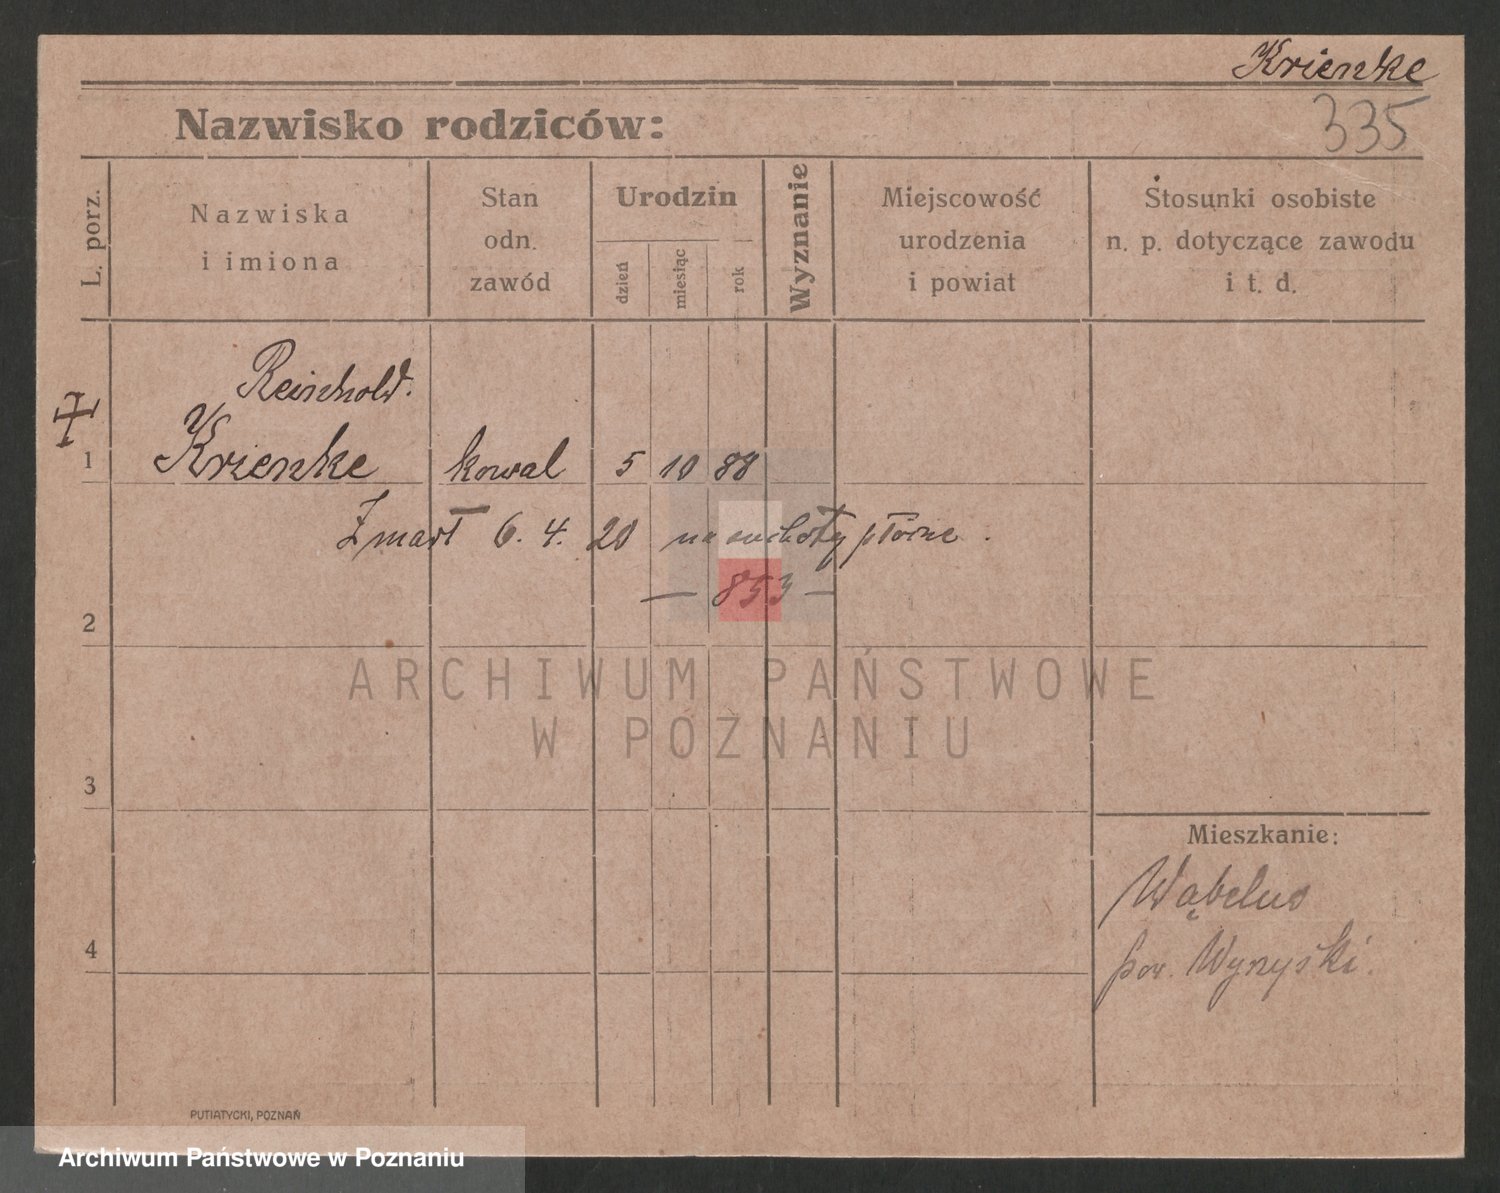 Krienke
335
Nazwisko rodziców:
L. porz.
Nazwiska
i imiona
Stan
odn.
zawód
Urodzin
dzień
miesiąc
rok
Wyznanie
Miejscowość
urodzenia
i powiat
Stosunki osobiste
n. p. dotyczące zawodu
i t. d.
Reinhold.
1 Krienke kowal 5 10 88
Zmarł 6. 4. 20 na suchoty płócne.
— 853 —
2
ARCHIWUM PAŃSTWOWE
W POZNANIU
3
Mieszkanie:
4
pow. Wyrzyski.
PUTIATYCKI, POZNAŃ
Archiwum Państwowe w Poznaniu